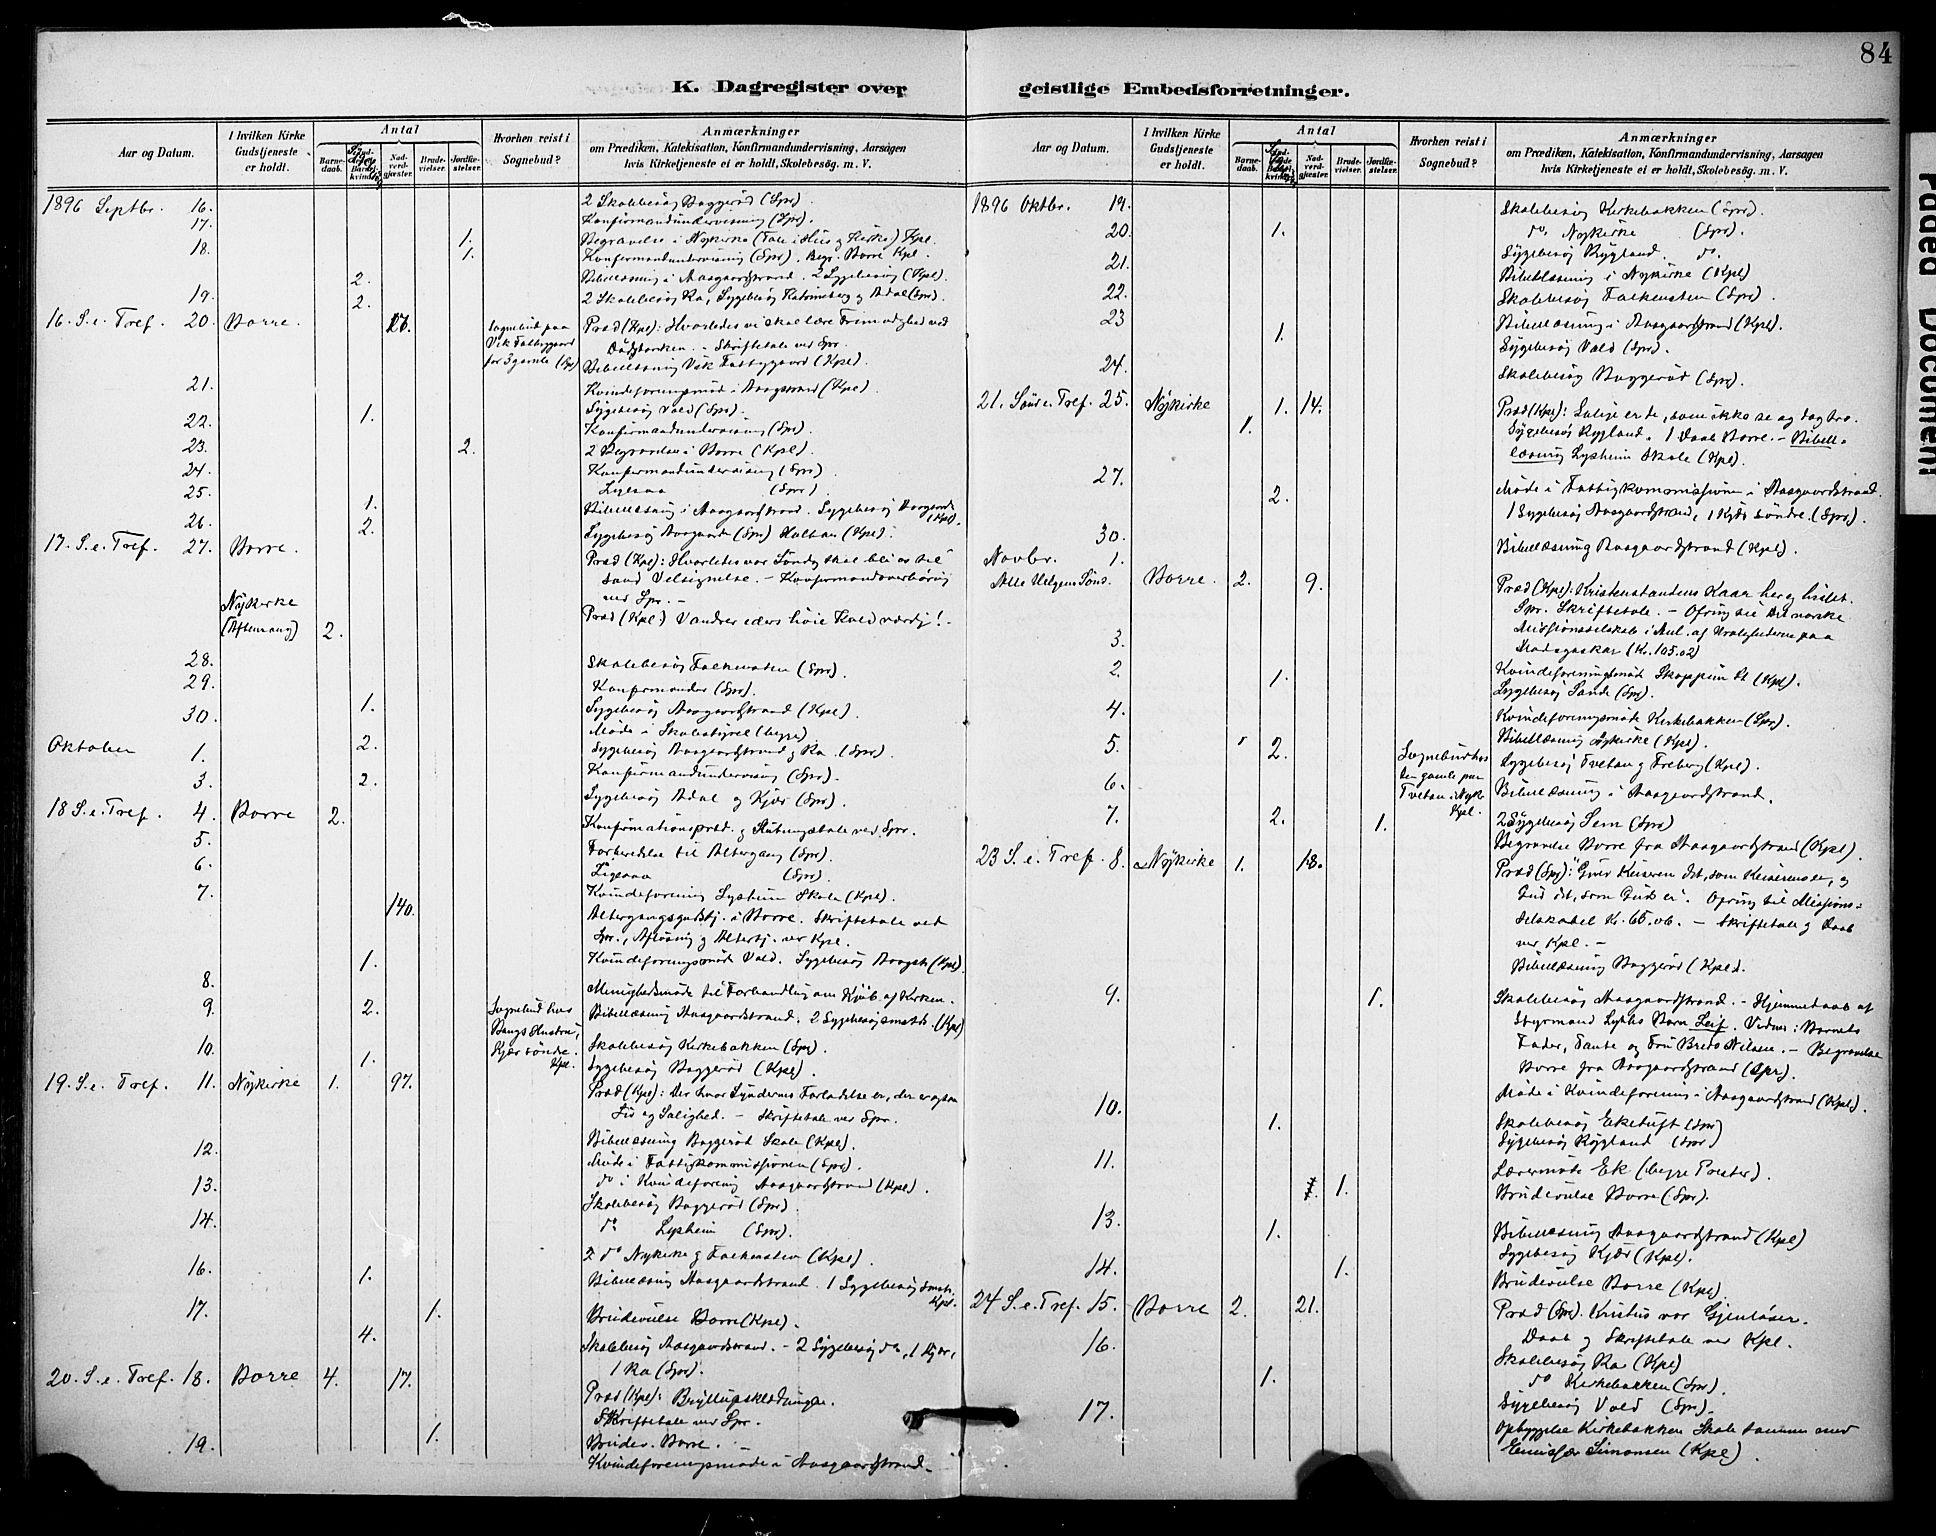 84
K. Dagregister over
geistlige Embedsforretninger.
Aar og Datum.
I hvilken Kirke Gudstjeneste er holdt.
Antal
Barnedaab.
Nadverdgjæster.
Brudevielser.
Jordfæstelser.
Hvorhen reist i Sognebud?
Anmærkninger
om Prædiken, Katekisation, Konfirmandundervisning, Aarsagen
hvis Kirketjeneste ei er holdt, Skolebesøg. m. V.
1896 Septbr. 16. 2 Skolebesøg Baggerød (Spr).
17. Konfirmandundervisning (Spr).
1. Begravelse i Nykirke (Tale i Hus og Kirke) Kpl.
18. 1. Konfirmandundervisning (Spr). Begr. Borre Kpl.
2. Bibellæsning i Aasgaardstrand. 2 Sygebesøg (Kpl).
19. 2. 2 Skolebesøg Ra, Sygebesøg Katrineberg og Adal (Spr).
16. S. e. Tref. 20. Borre. Sognebud paa Vik Fattiggaard for 3 gamle (Kpl)
Præd (Kpl): Hvorledes vi skal lære Frimodighed ved
Dødstanken. - Skriftetale ved Spr.
Bibellæsning Vik Fattiggaard (Kpl).
21. Kvindeforeningsmøde i Aasgstrand (Kpl).
1. Sygebesøg Vold (Spr).
22. Konfirmandundervisning (Spr).
23. 2. 2 Begravelser i Borre (Kpl).
24. Konfirmandundervisning (Spr)
25. Ligesaa (Spr).
1. Bibellæsning i Aasgaardstrand. Sygebesøg Aasgaard (Kpl).
26. 2. Sygebesøg Aasgaard (Spr) Holtan (Kpl).
17. S. e. Tref. 27. Borre. Præd (Kpl): Hvorledes vor Søndag skal bli os til
sand Velsignelse. - Konfirmandoverhøring
ved Spr. -
Nykirke (Aftensang) 2. Præd (Kpl) Vandrer eders høie Kald værdig! -
28. Skolebesøg Falkensten (Spr).
29. Konfirmander (Spr).
1. Sygebesøg Aasgaardstrand (Kpl).
30. Møde i Skolestyret (begge)
Oktober 1. 2. Sygebesøg Aasgaardstrand og Ra. (Spr).
Konfirmandundervisning (Spr).
3. 2. Sygebesøg Adal og Kjær (Spr).
18 S. e. Tref. 4. Borre 2. Konfirmationspræd. og Slutningstale ved Spr.
5. Forberedelse til Altergang (Spr).
6. Ligesaa (Spr).
7. Kvindeforening Lysheim Skole (Kpl).
140. Altergangsgudstj. i Borre. Skriftetale ved
Spr., Afløsning og Altertj. ved Kpl.
1. Kvindeforeningsmøde Vold. Sygebesøg Aasgstr (Kpl).
8. Menighedsmøde til Forhandling om Kjøb af Kirken.
9. 2. Sognebud hos Bangs Hustru, Kjær søndre. Kpl.
Bibellæsning Aasgaardstrand. 2 Sygebesøg smsts. (Kpl)
10. Skolebesøg Kirkebakken (Spr).
1. Sygebesøg Baggerød (Kpl).
19. S. e. Tref. 11. Nykirke 1. 97. Præd (Kpl): Der hvor Syndernes Forladelse er, der er ogsaa
Liv og Salighed. - Skriftetale ved Spr.
Bibellæsning Baggerød Skole (Kpl).
12. Møde i Fattigkommissionen (Spr).
do i Kvindeforening Aasgaardstrand (Kpl).
13. Skolebesøg Baggerød (Spr).
14. do Lysheim (Spr).
2 do Nykirke og Falkensten (Kpl).
16. 1. Bibellæsning Aasgaardstrand. 1 Sygebesøg smsts. Kpl.
17. 1. Brudevielse Borre (Kpl).
4. Skolebesøg Aasgaardstrand. - 2 Sygebesøg do, 1 Kjær,
1 Ra (Spr).
20. S. e. Tref. 18. Borre 4. 17. Præd (Kpl): Bryllupsklædningen.
Skriftetale ved Spr.
19. 1. Brudev. Borre.
Kvindeforeningsmøde i Aasgaardstrand.
Aar og Datum.
I hvilken Kirke Gudstjeneste er holdt.
Antal
Barnedaab.
Nadverdgjæster.
Brudevielser.
Jordfæstelser.
Hvorhen reist i Sognebud?
Anmærkninger
om Prædiken, Katekisation, Konfirmandundervisning, Aarsagen
hvis Kirketjeneste et er holdt, Skolebesøg. m. V.
1896 Oktbr. 19. Skolebesøg Kirkebakken (Spr).
20. 1. do. Nykirke (Spr).
Sygebesøg Rygland. do.
21. Bibellæsning i Nykirke (Kpl)
22. Skolebesøg Falkensten (Spr).
23 Bibellæsning i Aasgaardstrand (Kpl).
1. Sygebesøg Vold (Spr).
24. Skolebesøg Baggerød (Spr).
21. Sønd e. Tref. 25. Nykirke 1. 14. Præd (Kpl): Salige er de, som ikke se og dog tro.
1. Sygebesøg Rygland. 1 Daab Borre. - Bibel-
læsning Lysheim Skole (Kpl).
27. Møde i Fattigkommissionen i Aasgaardstrand.
2. 1 Sygebesøg Aasgaardstrand, 1 Kjær søndre. (Spr).
30. Bibellæsning Aasgaardstrand (Kpl).
Novbr. 1.
Alle Helgens Sønd. Borre. 2. 9. Præd (Kpl): Kristenstandens Kaar her og hisset.
Spr. Skriftetale. - Ofring til det norske
Missionsselskab i Anl. af Urolighederne paa
Madagaskar (Kr. 105.02)
3.
2. Kvindeforeningsmøde Skoppum St (Kpl).
1. Sygebesøg Sande (Spr).
4. Kvindeforeningsmøde Kirkebakken (Spr).
Bibellæsning Nykirke (Kpl).
5. 2. Sognebud hos den gamle paa Tveten i Nyk. Kpl.
Sygebesøg Tveten og Freberg (Kpl).
6. Bibellæsning i Aasgaardstrand.
7. 2. 1. 2 Sygebesøg Sem (Spr)
Begravelse Borre fra Aasgaardstrand (Kpl).
23 S. e. Tref. 8. Nykirke 1. 18. Præd (Spr): "Giver Keiseren det, som Keiserens er, og
Gud det, som Guds er". Ofring til Missions-
selskabet Kr. 65.06. - Skriftetale og Daab
ved Kpl. -
Bibellæsning Baggerød (Kpl).
9. 1. Skolebesøg Aasgaardstrand. - Hjemmedaab af
Styrmand Lykkes Barn Leif. Vidner: Barnets
Fader, Tante og Fru Breda Nilsen. - Begravelse
Borre fra Aasgaardstrand (Spr).
Møde i Kvindeforening i Aasgaardstrand (Kpl).
10. Skolebesøg Eketuft (Spr)
1. Sygebesøg Rygland (Spr)
11. Læremøde Ek (begge Prester).
1. Brudevielse Borre (Spr).
13. Bibellæsning Aasgaardstrand (Kpl)
1. Sygebesøg Kjær (Kpl).
14. 1. Brudevielse Borre (Kpl).
24 S. e. Tref. 15. Borre 2. 21. Præd (Spr). Kristus vor Gjenløser.
Daab og Skriftetale ved Kpl.
16. Skolebesøg Ra (Kpl)
do Kirkebakken (Spr).
1. Sygebesøg Vold (Spr).
17. Opbyggelse Kirkebakken Skole sammen med
Emissær Simonsen (Kpl).
Paged Document